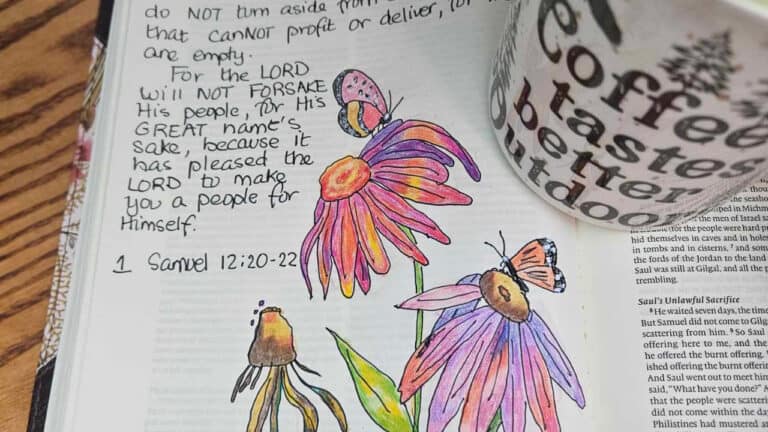 do NOT turn aside from
that canNOT profit or deliver, for
are empty.
For the LORD
will NOT FORSAKE
His people, for His
GREAT name's
sake, because it
has pleased the
LORD to make
you a people for
Himself.
1 Samuel 12:20-22
Coffee
tastes
better
Outdoor
the men of Israel sa
for the people were hard p
hid themselves in caves and in hole
in tombs and in cisterns, 7 and som
the fords of the Jordan to the land
Saul was still at Gilgal, and all the p
trembling.
Saul's Unlawful Sacrifice
8 He waited seven days, the time
But Samuel did not come to Gilg
scattering from him. 9 So Saul
offering here to me, and the
he offered the burnt offering.
ished offering the burnt offering
And Saul went out to meet him
said, "What have you done?" A
that the people were scatteri
did not come within the day
Philistines had mustered a